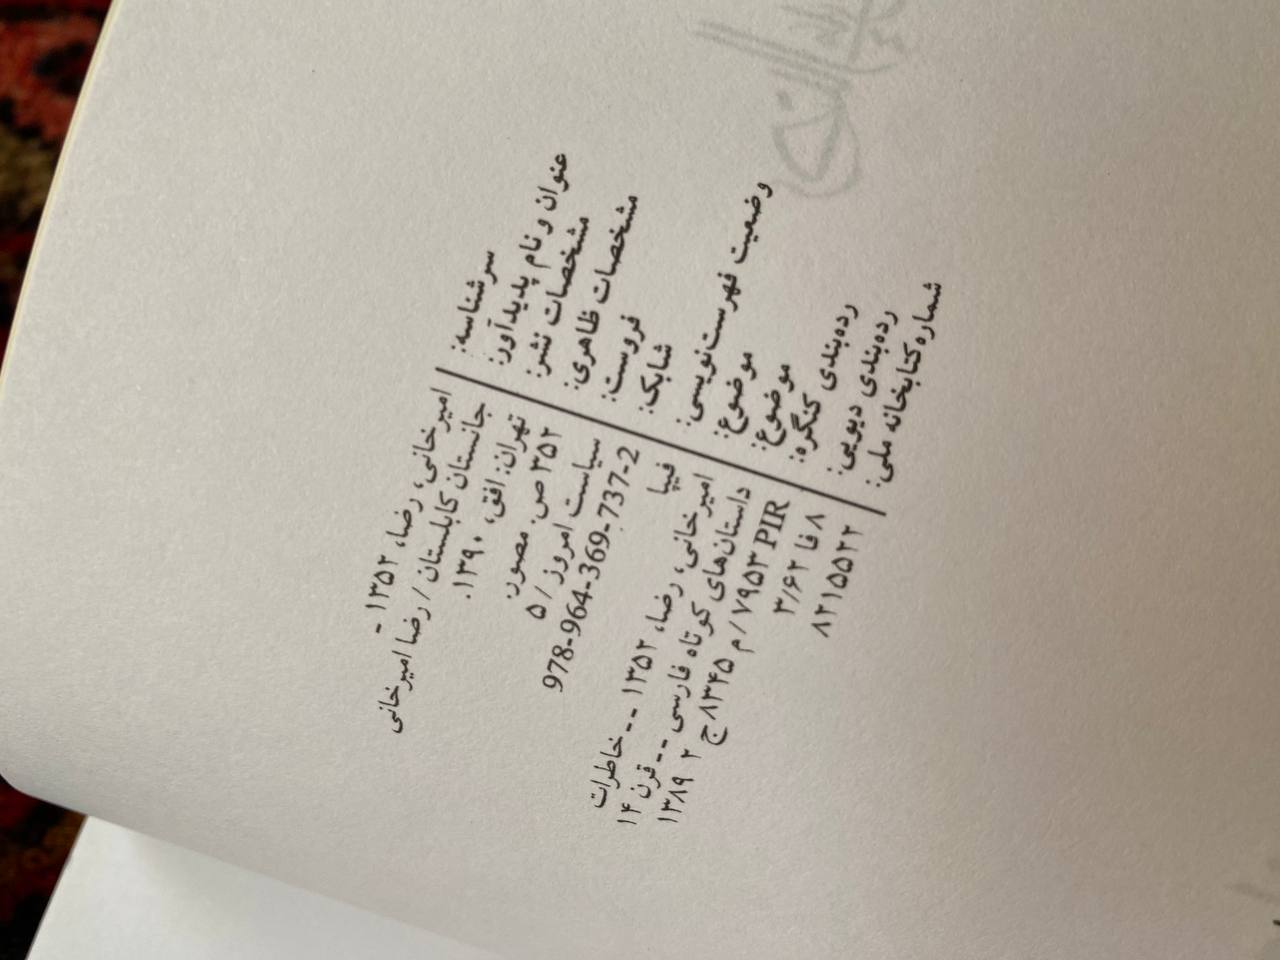 سرشناسه: امیرخانی، رضا، ۱۳۵۲ -
عنوان و نام پدیدآور: جانستان کابلستان / رضا امیرخانی
مشخصات نشر: تهران: افق، ۱۳۹۰.
مشخصات ظاهری: ۳۵۲ ص. مصور.
فروست: سیاست امروز / ۵
شابک: 978-964-369-737-2
وضعیت فهرست‌نویسی: فیپا
موضوع: امیرخانی، رضا، ۱۳۵۲ -- خاطرات
موضوع: داستان‌های کوتاه فارسی -- قرن ۱۴
رده‌بندی کنگره: PIR ۷۹۵۳ / م ۸۳۴۵ ج ۲ ۱۳۸۹
رده‌بندی دیویی: ۸ فا ۳/۶۲
شماره کتابخانه ملی: ۸۲۱۵۵۲۲